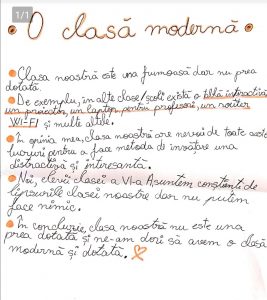 1/1
O clasă modernă
Clasa noastră este una frumoasă dar nu prea
dotată.
De exemplu, în alte clase/școli există o tablă interactivă
un proiector, un laptop pentru profesori, un router
WI-FI și multe altele.
În opinia mea, clasa noastră are nevoie de toate aceste
lucruri pentru a face metoda de învățare una
distractivă și interesantă.
Noi, elevii clasei a VI-a A suntem conștienți de
lipsurile clasei noastre dar nu putem
face nimic.
În concluzie, clasa noastră nu este una
prea dotată și ne-am dori să avem o clasă
modernă și dotată.